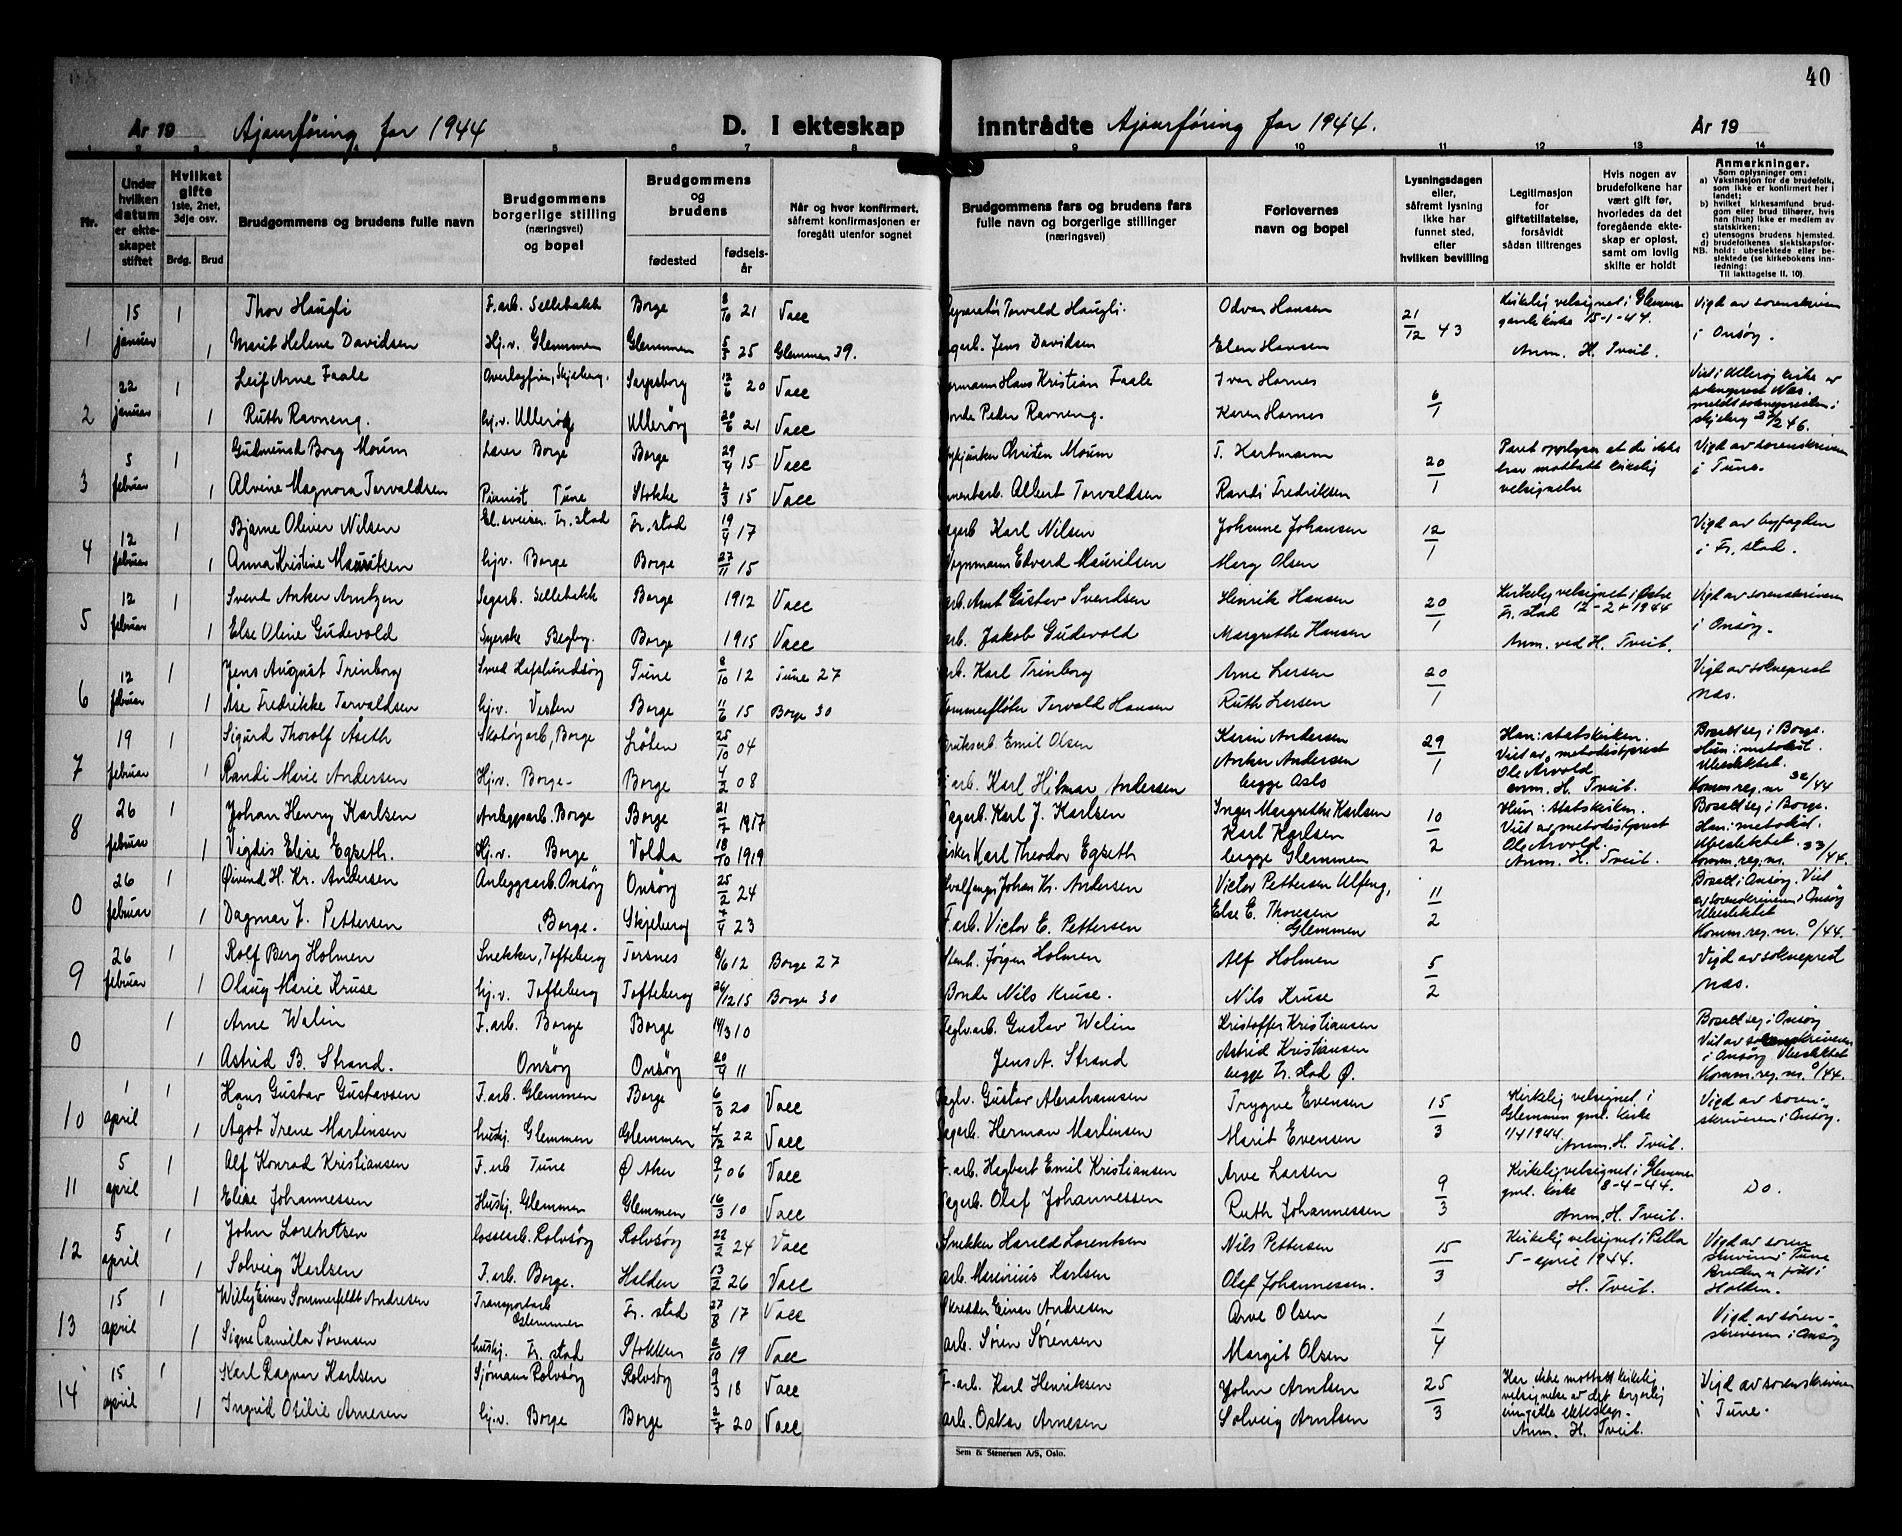 40
År 19 Ajourføring for 1944 D. I ekteskap inntrådte Ajourføring for 1944. År 19
1 2 3 5 6 7 8 9 10 11 12 13 14
Nr.
Under hvilken datum er ekteskapet stiftet
Hvilket gifte 1ste, 2net, 3dje osv.
Brdg. Brud
Brudgommens og brudens fulle navn
Brudgommens borgerlige stilling (næringsvei) og bopel
Brudgommens og brudens
fødested
fødselsår
Når og hvor konfirmert, såfremt konfirmasjonen er foregått utenfor sognet
Brudgommens fars og brudens fars fulle navn og borgerlige stillinger (næringsvei)
Forlovernes navn og bopel
Lysningsdagen eller, såfremt lysning ikke har funnet sted, eller hvilken bevilling
Legitimasjon for giftetillatelse, forsåvidt sådan tiltrenges
Hvis nogen av brudefolkene har vært gift før, hvorledes da det foregående ekteskap er opløst, samt om lovlig skifte er holdt
Anmerkninger.
Som oplysninger om:
a) Vaksinasjon for de brudefolk, som ikke er konfirmert her i landet;
b) hvilket kirkesamfund brudgom eller brud tilhører, hvis han (hun) ikke er medlem av statskirken;
c) utensogns brudens hjemsted.
d) brudefolkenes slektskapsforhold: ubeslektede eller beslektede (se kirkebokens innledning:
NB. Til iakttagelse II. 10).
1 15 januar 1 Thor Haugli F.arb. Sellebakk Borge 8/10 21 Vacc Torvald Haugli. Odvar Hansen 21/12 43 Kirkelig velsignet i Glemmen gamle kirke 15-1-44. Vigd av sorenskriveren
1 Marit Helene Davidsen Hj.v. Glemmen Glemmen 5/7 25 Glemmen 39. Jens Davidsen Elen Hansen Anm. H. Tveit. i Onsøy.
2 22 januar 1 Leif Arne Faale Skjeberg. Sarpsborg 12/6 20 Vacc Hans Kristian Faale Ivar Hornes 6/1 Viet i Ullerøy kirke av sokneprest Næs.
1 Ruth Ravneng. hj.v. Ullerøy Ullerøy 20/6 21 Vacc Peder Ravneng. Karen Hornes meldt soknepresten i Skjeberg
3 5 februar 1 Gudmund Borg Moum Lærer Borge Borge 29/4 15 Vacc Christen Moum T. Hartmann 20/1 Paret opplyser at de ikke har mottatt kirkelig velsignelse Vigd av sorenskriveren i Tune.
1 Alvine Magnora Torvaldsen Pianist Tune Stokke 2/3 15 Vacc Albert Torvaldsen Randi Fredriksen
4 12 februar 1 Bjarne Oliver Nilsen El.sveiser Fr.stad Fr.stad 19/9 17 Karl Nilsen Johanne Johansen 12/1 Vigd av byfogden i Fr.stad.
1 Anna Kristine Mauritsen hjv. Borge Borge 27/11 15 Edvard Mauritsen Mary Olsen
5 12 februar 1 Svend Anker Arntzen Sagarb. Sellebakk Borge 1912 Vacc arb. Arnt Gustav Svendsen Henrik Hansen 20/1 Kirkelig velsignet i Østre Fr.stad 12-2-1944 Vigd av sorenskriveren
1 Else Oline Gudevold Syerske Begby. Borge 1915 Vacc arb. Jakob Gudevold Margrethe Hansen Anm. ved H. Tveit. i Onsøy.
6 12 februar 1 Jens August Trinborg Smed Hafslundsøy Tune 8/10 12 Tune 27 arb. Karl Trinborg Arne Larsen 20/1 Vigd av sokneprest Næs.
1 Åse Fredrikke Torvaldsen hj.v. Visten Borge 11/6 15 Borge 30 Tømmerfløter Torvald Hansen Ruth Larsen
7 19 februar 1 Sigurd Thorolf Åseth Skotøyarb, Borge Løten 25/10 04 Emil Olsen Karin Andersen 29/1 Han: statskirken. Viet av metodistprest Ole Arvold. anm. H. Tveit. Bosatt seg i Borge. Hun: metodist. Ubeslektet. Komm.reg.nr 32/44
1 Randi Marie Andersen Hj.v. Borge- Borge 4/2 08 F.arb. Karl Hilmar Andersen Anker Andersen begge Oslo
8 26 februar 1 Johan Henry Karlsen Anleggsarb. Borge Borge 21/7 1917 Fagarb. Karl J. Karlsen Inger Margrethe Karlsen 10/2 Hun: Statskirken. Viet av metodistprest Ole Arvold. Anm. H. Tveit. Bosatt seg i Borge. Han: metodist. Ubeslektet. Komm.reg.nr. 33/44.
1 Vigdis Elise Egseth. Hj.v. Borge Volda 18/10 1919 Fisker Karl Theodor Egseth Karl Karlsen begge Glemmen
0 26 februar 1 Øivind H. Kr. Andersen Anleggsarb. Onsøy Onsøy 25/2 24 Hvalfanger Johan Kr. Andersen Victor Pettersen Ulfeng, 11/2 Bosatt i Onsøy. Viet av sorenskriveren i Onsøy Ubeslektet Komm.reg.nr. 0/44.
1 Dagmar J. Pettersen Borge. Skjeberg 7/4 23 F.arb. Victor E. Pettersen Else E. Thoresen Glemmen
9 26 februar 1 Rolf Berg Holmen Snekker, Tofteberg Torsnes 8/6 12 Borge 27 Stenh. Jørgen Holmen Alf Holmen 5/2 Vigd av sokneprest Næs.
1 Olaug Marie Kruse hj.v. Tofteberg Tofteberg 26/12 15 Borge 30 Bonde Nils Kruse. Nils Kruse
0 1 Arne Welin F.arb. Borge Borge 14/3 10 Teglv.arb. Gustav Welin Kristoffer Kristiansen Bosatt seg i Onsøy Viet av sorenskriveren i Onsøy Ubeslektet Komm.reg.nr. 0/44.
1 Astrid B. Strand. Onsøy Onsøy 20/9 11 Jens A. Strand Astrid Kristiansen begge Fr.stad Ø.
10 1 april 1 Hans Gustav Gustavsen F.arb. Glemmen Borge 6/3 20 Vacc Teglv. Gustav Abrahamsen Trygve Evensen 15/3 Kirkelig velsignet i Glemmen gml. kirke 1/4 1944. Anm. H. Tveit. Vigd av sorenskriveren i Onsøy.
1 Ågot Irene Martinsen hushj. Glemmen Glemmen 4/12 22 Vacc Sagarb. Herman Martinsen Marit Evensen
11 5 april 1 Alf Konrad Kristiansen F.arb Tune Ø Aker 9/1 06 Vacc F.arb. Hagbart Emil Kristiansen Arve Larsen 9/3 Kirkelig velsignet i Glemmen gml. kirke 8-4-44. Anm. H. Tveit. Do.
1 Elise Johannessen Hushj. Glemmen Glemmen 16/3 10 Vacc Sagarb. Olaf Johannessen Ruth Johannessen
12 5 april 1 John Lorentsen Losserb. Rolvsøy Rolvsøy 22/2 24 Vacc Snekker Harald Lorentsen Nils Pettersen 15/3 Kirkelig velsignet i Pella 5-april 1944. H. Tveit. Vigd av sorenskriveren i Tune Bruden er født i Halden.
1 Solveig Karlsen F.arb. Borge. Halden 13/2 26 Vacc arb. Marinius Karlsen Olaf Johannessen.
13 15 april 1 Willy Einar Sommerfeldt Andresen Transportarb Glemmen Fr.stad 27/8 17 Vacc Skredder Einar Andresen Arve Olsen 1/4 Vigd av sorenskriveren i Onsøy
1 Signe Camilla Sørensen hushj. Fr.stad Stokken 8/10 19 Vacc arb. Søren Sørensen Margit Olsen
14 15 april 1 Karl Ragnar Karlsen Sjømann Rolvsøy Rolvsøy 9/3 18 Vacc F.arb. Karl Henriksen John Arntsen 25/3 Har ikke mottatt kirkelig velsignelse av det borgerlig inngåtte ekteskap. Anm. H. Tveit. Vigd av sorenskriveren i Tune.
1 Ingrid Otilie Arnesen hj.v. Borge Borge 2/7 20 Vacc arb. Oskar Arnesen Solveig Arntsen
Sem & Stenersen A/S, Oslo.